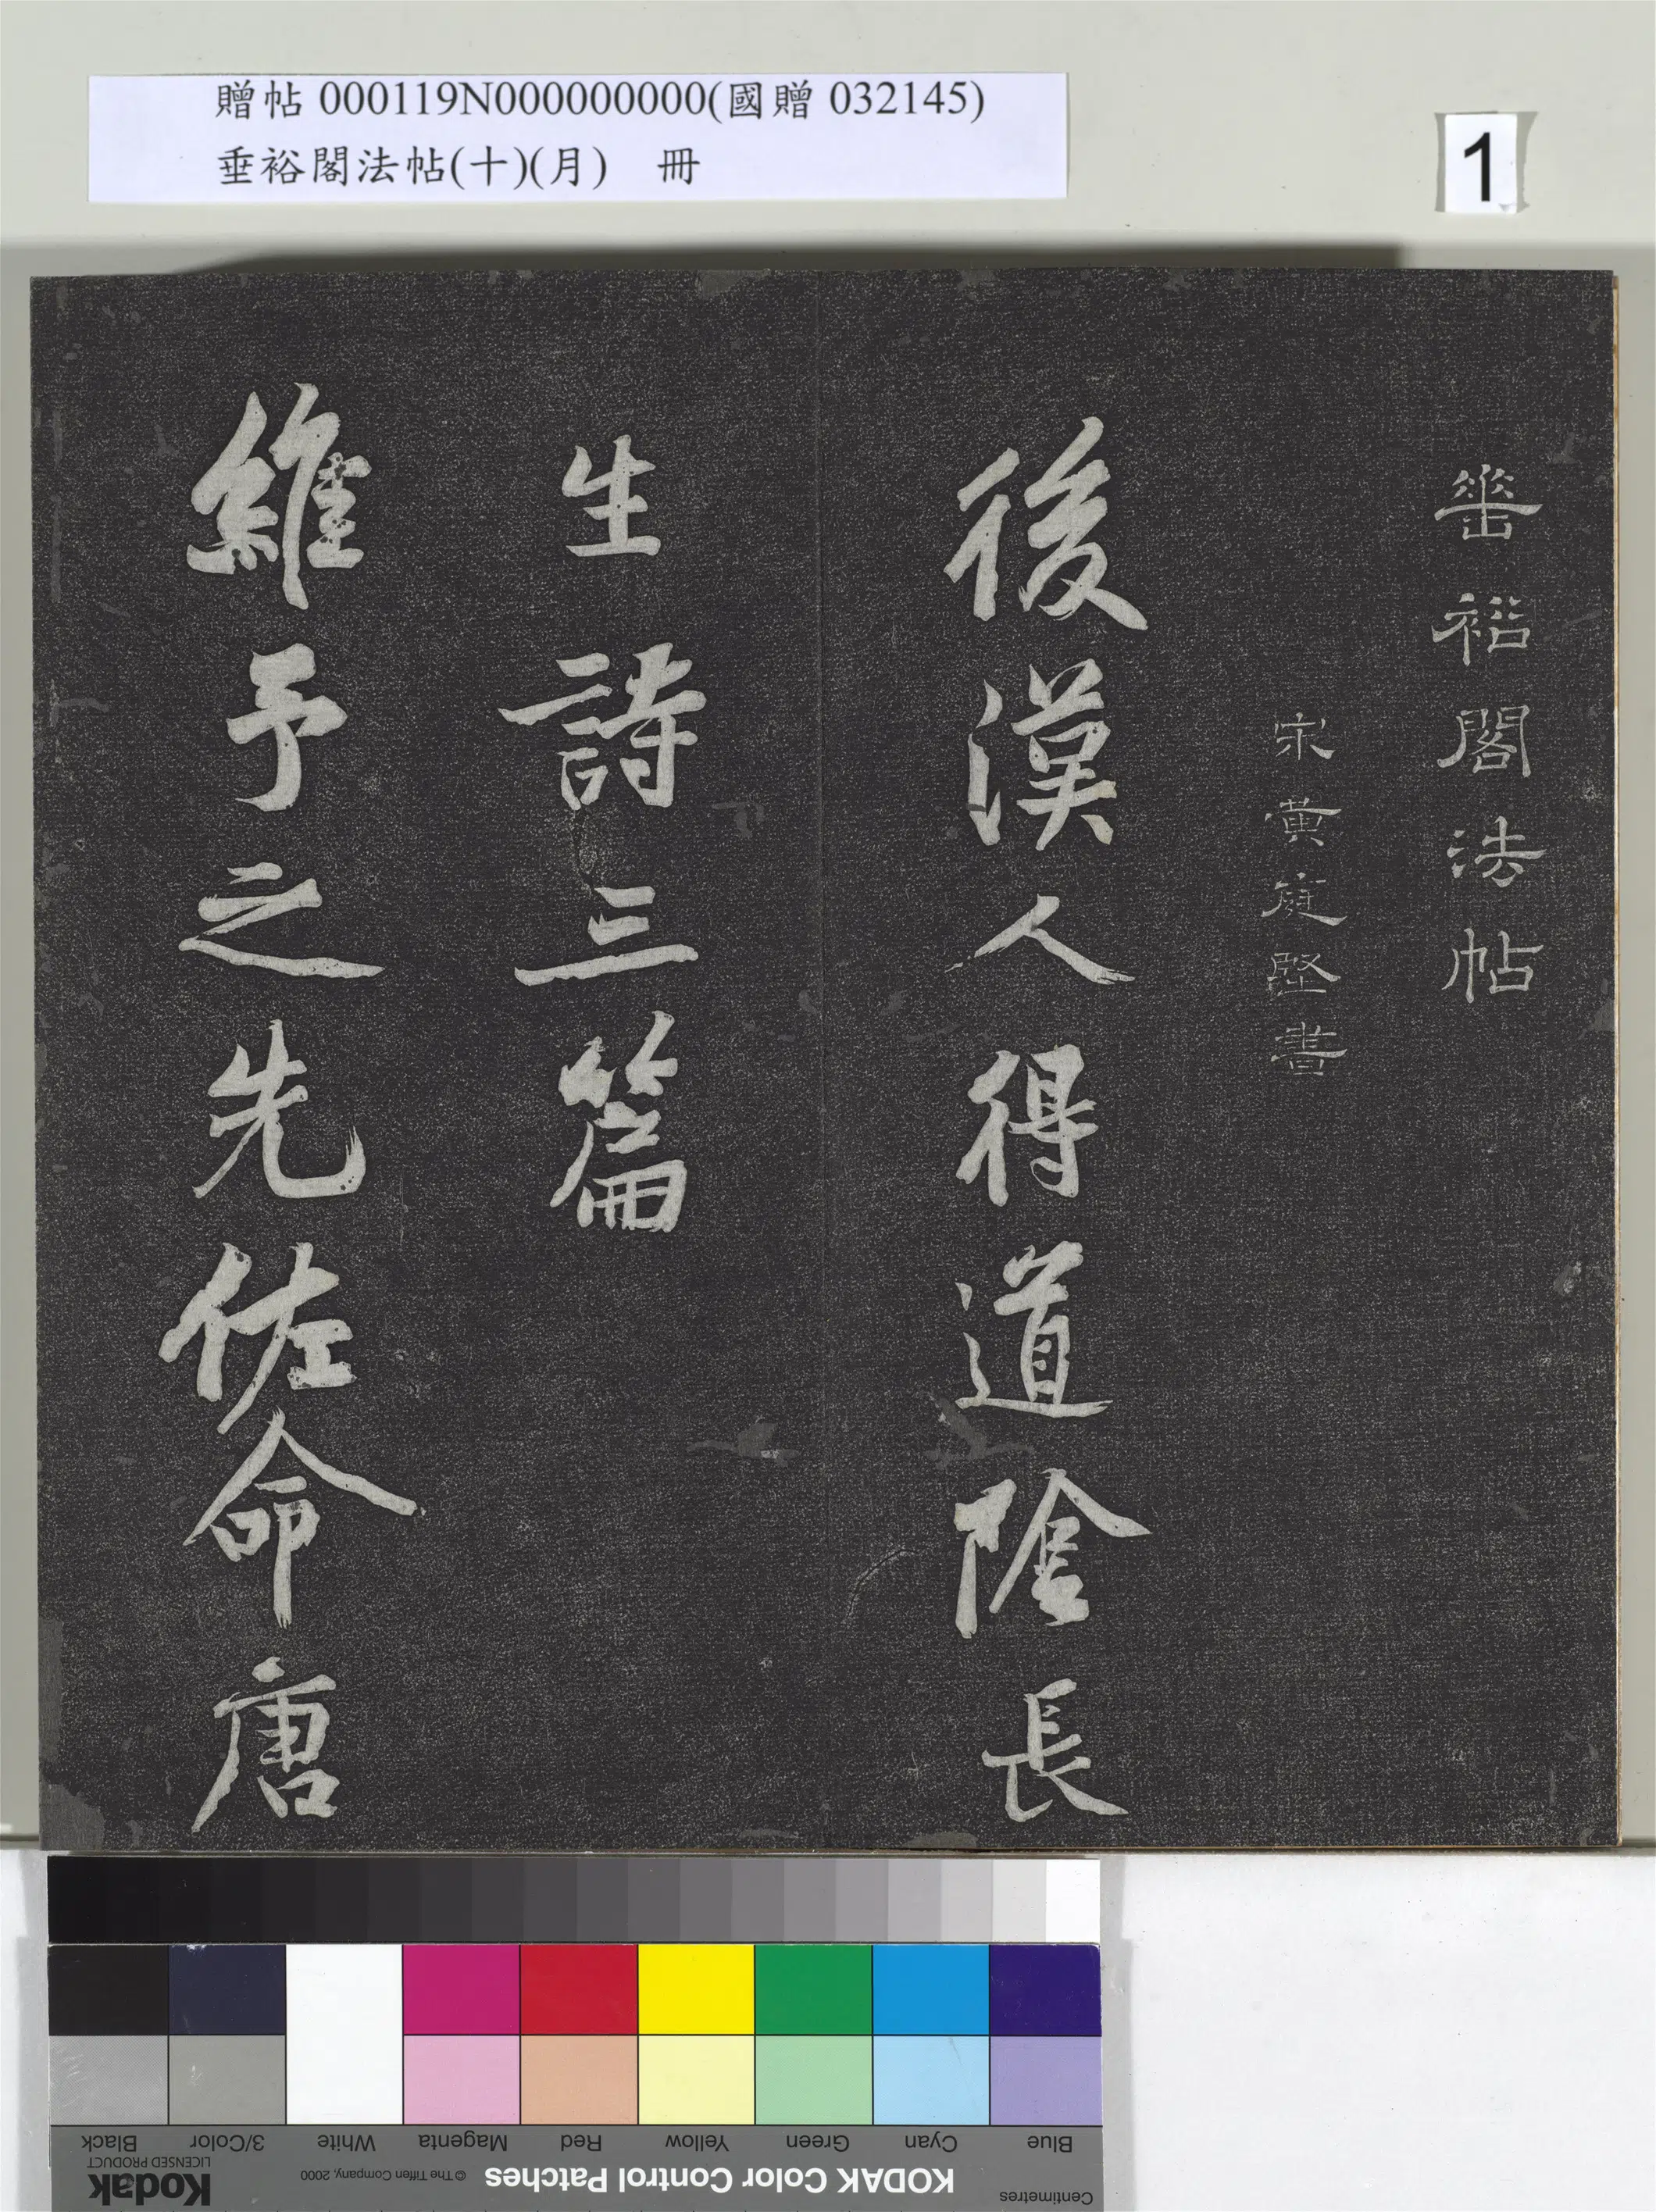 贈帖 000119N000000000(國贈 032145)
垂裕閣法帖(十)(月) 冊
1
垂裕閣法帖
宋黃庭堅書
後漢人得道陰長
生詩三篇
維予之先佐命唐
Blue Cyan Green Yellow Red Magenta White 3/Color Black
Centimetres KODAK Color Control Patches © The Tiffen Company, 2000 Kodak
LICENSED PRODUCT